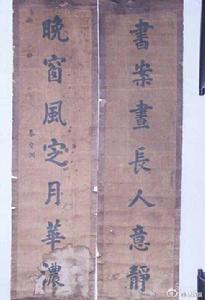 書案晝長人意靜
晚窗風定月華濃